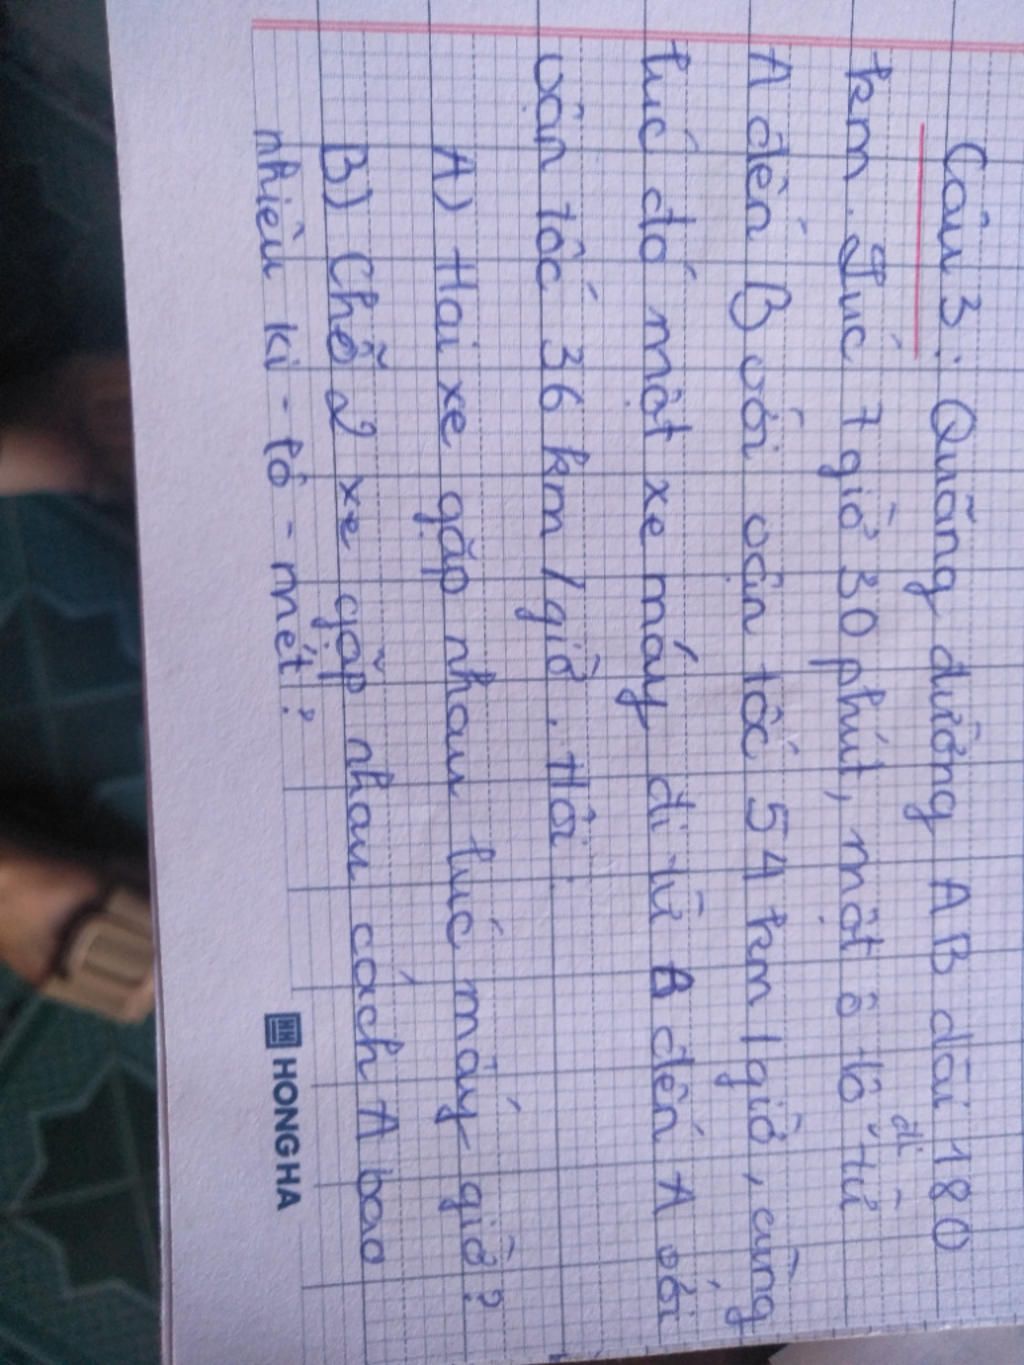 Câu 3: Quãng đường AB dài 180
km. Lúc 7 giờ 30 phút, một ô tô đi từ
A đến B với vận tốc 54 km/giờ, cùng
lúc đó một xe máy đi từ B đến A với
vận tốc 36 km/giờ. Hỏi:
A) Hai xe gặp nhau lúc mấy giờ?
B) Chỗ 2 xe gặp nhau cách A bao
nhiêu ki-lô-mét?
HH HONG HA